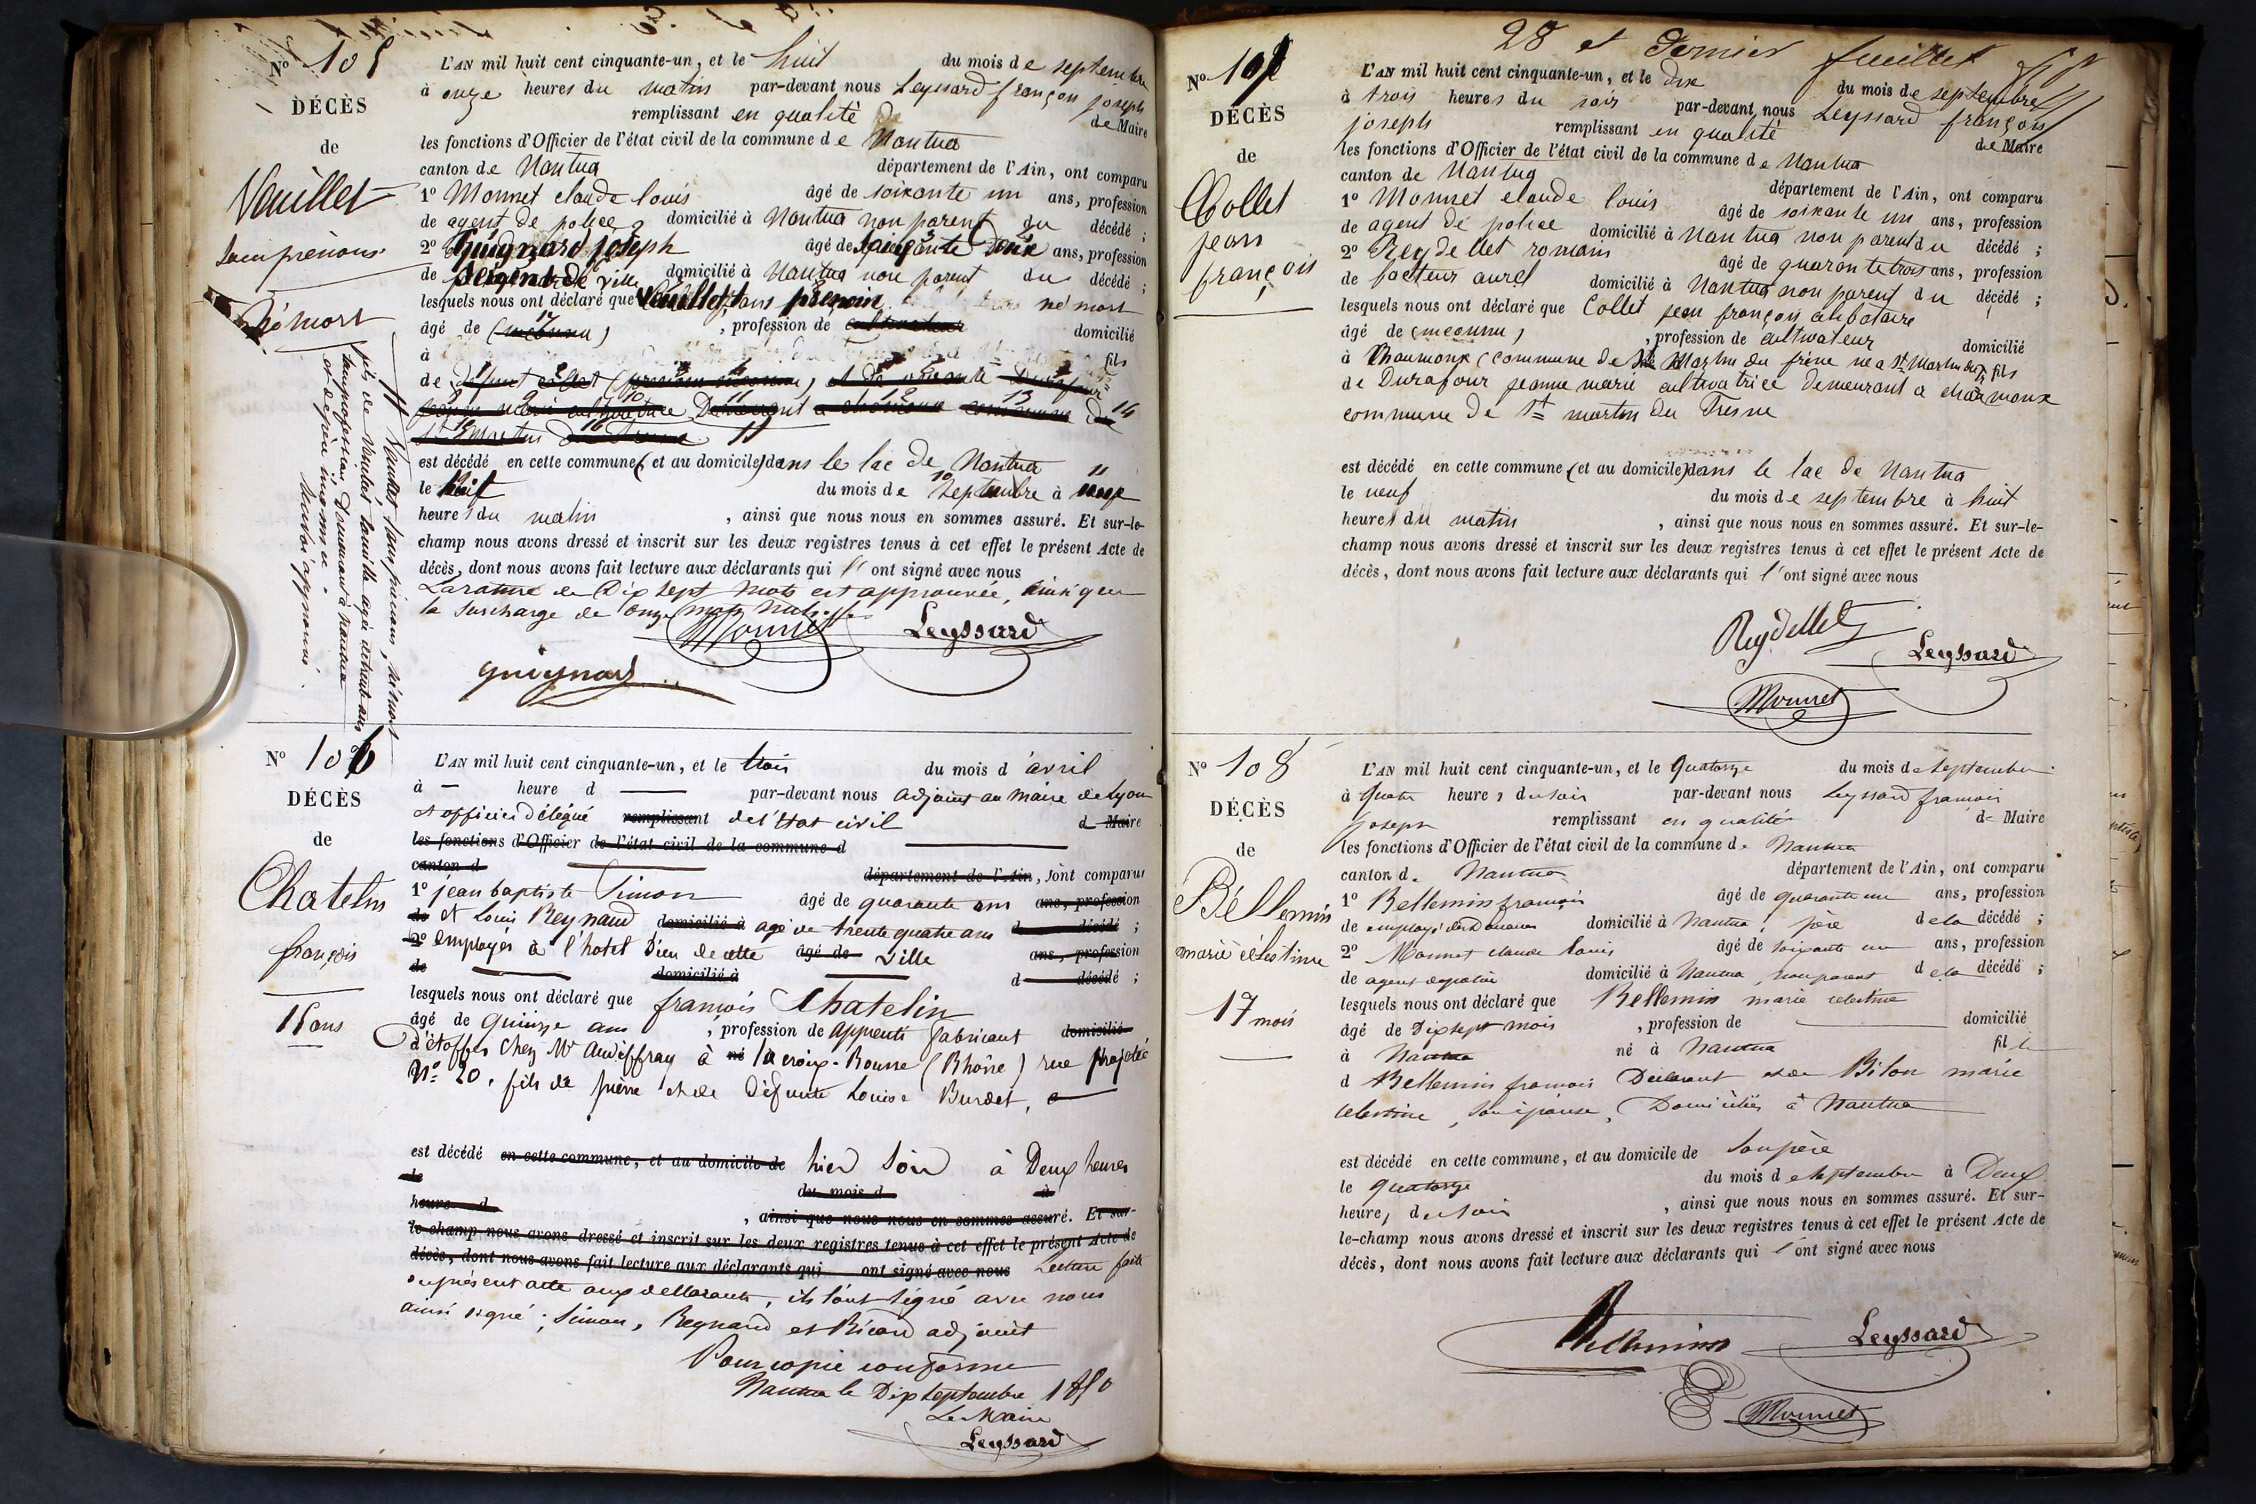 Nº 105
DÉCÈS
de
Veuillet
sans prénoms
né mort
L'AN mil huit cent cinquante-un, et le huit du mois de septembre
à onze heures du matin par-devant nous Leyssard françois joseph
remplissant en qualité de Maire
les fonctions d'Officier de l'état civil de la commune de Nantua
canton de Nantua département de l'Ain, ont comparu
1º Monnet claude louis âgé de soixante un ans, profession
de agent de police domicilié à Nantua non parent du décédé ;
2º Guignard joseph âgé de ans, profession
de sergent de ville domicilié à Nantua non parent du décédé ;
lesquels nous ont déclaré que Veuillet, sans prénom né mort
âgé de (inconnu) , profession de cultivateur domicilié
à fils
de défunt collet (prénom inconnu) et de vivante Durafour
jeanne marie cultivatrice Demeurant a charmoux commune de
St Martin du Fresne
est décédé en cette commune (et au domicile) dans le lac de Nantua
le huit du mois de septembre à onze
heures du matin , ainsi que nous nous en sommes assuré. Et sur-le-
champ nous avons dressé et inscrit sur les deux registres tenus à cet effet le présent Acte de
décès, dont nous avons fait lecture aux déclarants qui l'ont signé avec nous
La rature de Dix sept mots est approuvée, ainsi que
la surcharge de onze mots
Monnet Leyssard
guignard
Veuillet sans prénoms, né mort
fils de Veuillet camille agé de huit ans
Demeurant à Nantua
et de père inconnu.
Renvoi approuvé.
Nº 106
DÉCÈS
de
Chatelin
françois
15 ans
L'AN mil huit cent cinquante-un, et le trois du mois d'avril
à — heure d — par-devant nous adjoint au Maire de Lyon
et officier délégué remplissant de l'Etat civil d Maire
les fonctions d'Officier de l'état civil de la commune d
canton d département de l'Ain, sont comparus
1º jean baptiste Simon âgé de quarante ans ans, profession
de et Louis Reynaud domicilié à agé de trente quatre ans d décédé ;
2º employés à l'hotel Dieu de cette âgé de ville ans, profession
de domicilié à d décédé ;
lesquels nous ont déclaré que françois Chatelin
âgé de quinze ans , profession de apprenti fabricant domicilié
d'étoffes chez Mr Audiffray à né la croix-Rousse (Rhône) rue projetée
Nº 20, fils de pierre et de Défunte Louise Burdet,
est décédé en cette commune, et au domicile de hier soir à Deux heures
le du mois d à
heure d , ainsi que nous nous en sommes assuré. Et sur-
le-champ nous avons dressé et inscrit sur les deux registres tenus à cet effet le présent Acte de
décès, dont nous avons fait lecture aux déclarants qui ont signé avec nous Lecture faite
du présent acte aux déclarants, ils l'ont signé avec nous
ainsi signé : Simon, Reynaud et Ricard adjoint
Pour copie conforme
Nantua le Dix septembre 1850
Le Maire
Leyssard
28 et Dernier feuillet
Nº 107
DÉCÈS
de
Collet
jean
françois
L'AN mil huit cent cinquante-un, et le dix du mois de septembre
à trois heures du soir par-devant nous Leyssard françois
joseph remplissant en qualité de Maire
les fonctions d'Officier de l'état civil de la commune de Nantua
canton de Nantua département de l'Ain, ont comparu
1º Monnet claude louis âgé de soixante un ans, profession
de agent de police domicilié à Nantua non parent du décédé ;
2º Reydellet romain âgé de quarante trois ans, profession
de facteur rurel domicilié à Nantua non parent du décédé ;
lesquels nous ont déclaré que Collet jean françois célibataire
âgé de (inconnu) , profession de cultivateur domicilié
à Chaumoux (commune de St Martin du frène né a St Martin du fils
de Durafour jeanne marie cultivatrice demeurant a charmoux
commune de St martin du Fresne
est décédé en cette commune (et au domicile) dans le lac de Nantua
le neuf du mois de septembre à huit
heures du matin , ainsi que nous nous en sommes assuré. Et sur-le-
champ nous avons dressé et inscrit sur les deux registres tenus à cet effet le présent Acte de
décès, dont nous avons fait lecture aux déclarants qui l'ont signé avec nous
Reydellet
Leyssard
Monnet
Nº 108
DÉCÈS
de
Béllemin
marie célestine
17 mois
L'AN mil huit cent cinquante-un, et le quatorze du mois de septembre
à quatre heures du soir par-devant nous Leyssard françois
joseph remplissant en qualité de Maire
les fonctions d'Officier de l'état civil de la commune de Nantua
canton de Nantua département de l'Ain, ont comparu
1º Bellemin françois âgé de quarante un ans, profession
de employé des Douanes domicilié à Nantua, père de la décédé ;
2º Monnet claude louis âgé de soixante un ans, profession
de agent de police domicilié à Nantua, non parent de la décédé ;
lesquels nous ont déclaré que Bellemin marie celestine
âgé de Dix sept mois , profession de — domicilié
à Nantua né à Nantua fille
d Bellemin françois Déclarant et de Biton marie
celestine, son épouse, Domiciliés à Nantua
est décédé en cette commune, et au domicile de son père
le quatorze du mois de septembre à Deux
heures du soir , ainsi que nous nous en sommes assuré. Et sur-
le-champ nous avons dressé et inscrit sur les deux registres tenus à cet effet le présent Acte de
décès, dont nous avons fait lecture aux déclarants qui l'ont signé avec nous
Bellemin
Leyssard
Monnet